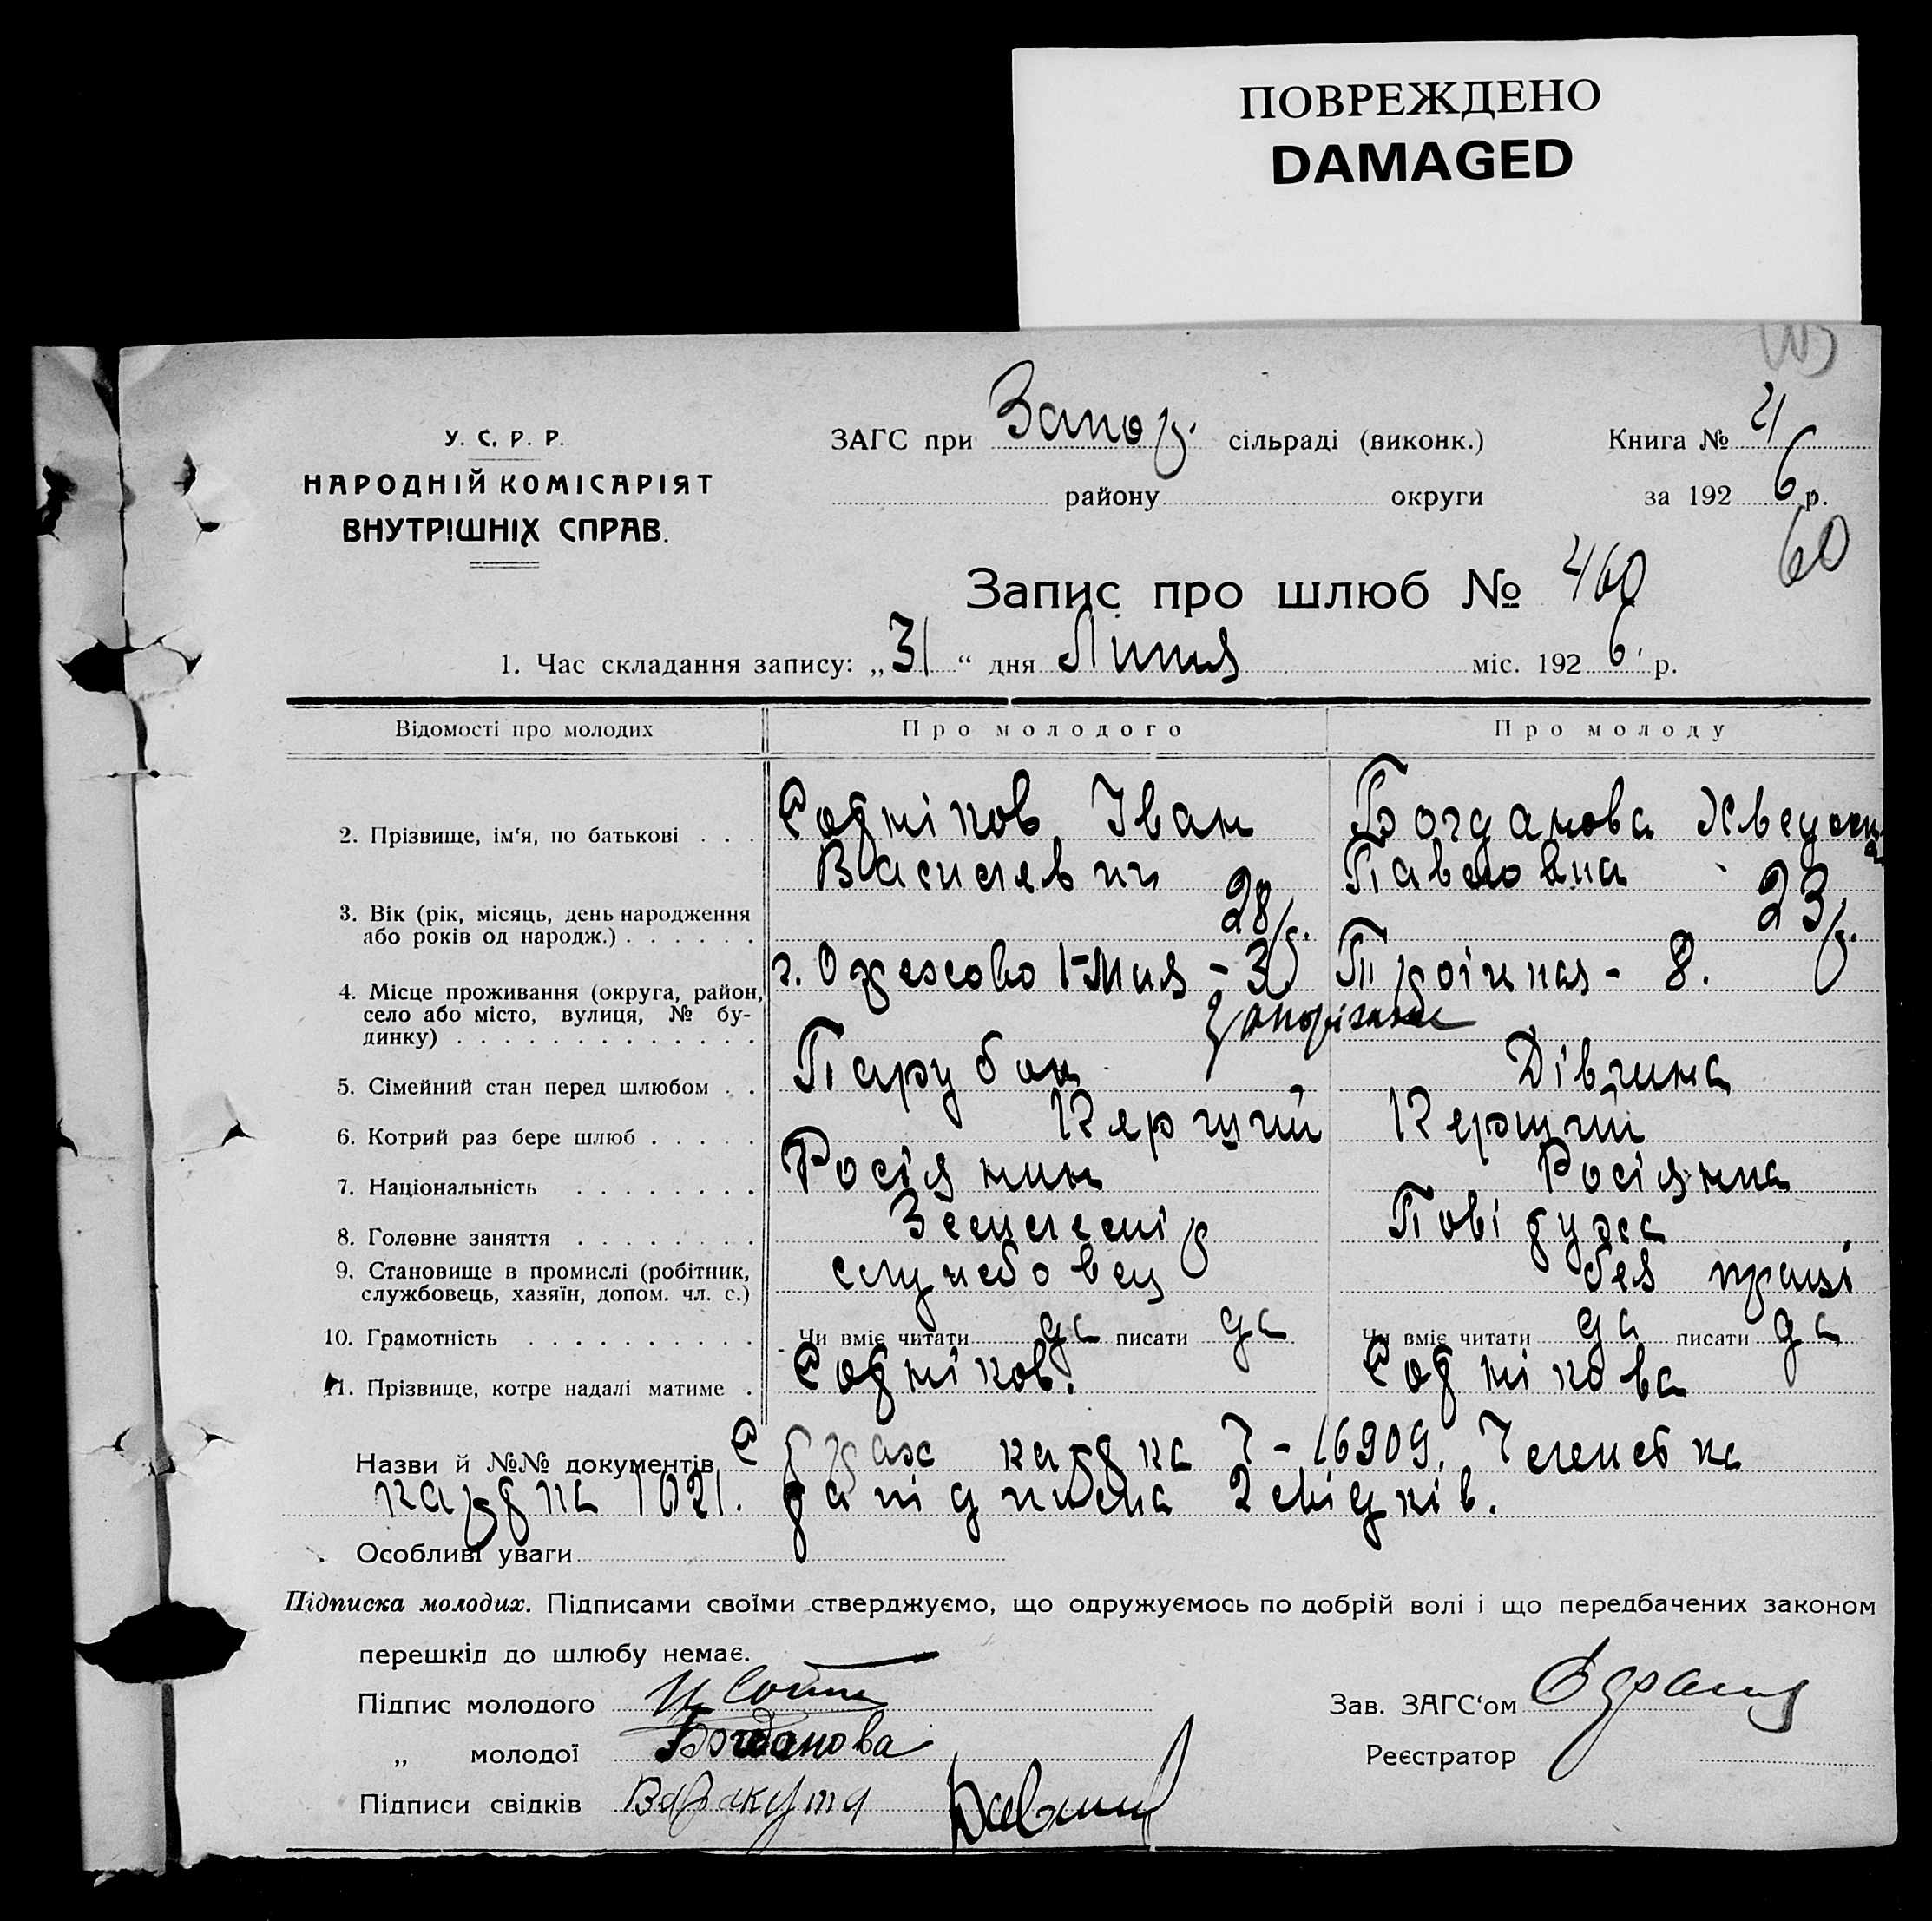 ПОВРЕЖДЕНО
DAMAGED
У. С. Р. Р.
НАРОДНІЙ КОМІСАРІЯТ
ВНУТРІШНІХ СПРАВ.
ЗАГС при Запор. сільраді (виконк.) Книга № 4
району округи за 192 6 р.
60
Запис про шлюб № 460
1. Час складання запису: „31“ дня Липня міс. 192 6 р.
Відомості про молодих Про молодого Про молоду
2. Прізвище, ім‘я, по батькові . . . Сотніков Іван Богданова
Василевич Павловна
3. Вік (рік, місяць, день народження 28 р. 23 р.
або років од народж.) . . . . . .
4. Місце проживання (округа, район, 1-Мая - 30 Троіцкая - 8.
село або місто, вулиця, № бу- Запоріжжє
динку) . . . . . . . . . . . . .
5. Сімейний стан перед шлюбом . . Парубок Дівчина
6. Котрий раз бере шлюб . . . . . Перший Перший
7. Національність . . . . . . . . Росіянин Росіянка
8. Головне заняття . . . . . . . .
9. Становище в промислі (робітник, службовец без праці
службовець, хазяїн, допом. чл. с.)
10. Грамотність . . . . . . . . . . Чи вміє читати да писати да Чи вміє читати да писати да
11. Прізвище, котре надалі матиме . Сотніков. Сотнікова
Назви й №№ документів Страх картка 7-16909. Членська
картка 1021. та підписка 2 свідків.
Особливі уваги
Підписка молодих. Підписами своїми стверджуємо, що одружуємось по добрій волі і що передбачених законом
перешкід до шлюбу немає.
Підпис молодого И Сотни
„ молодої Богданова
Підписи свідків Варакута
Зав. ЗАГС‘ом
Реєстратор